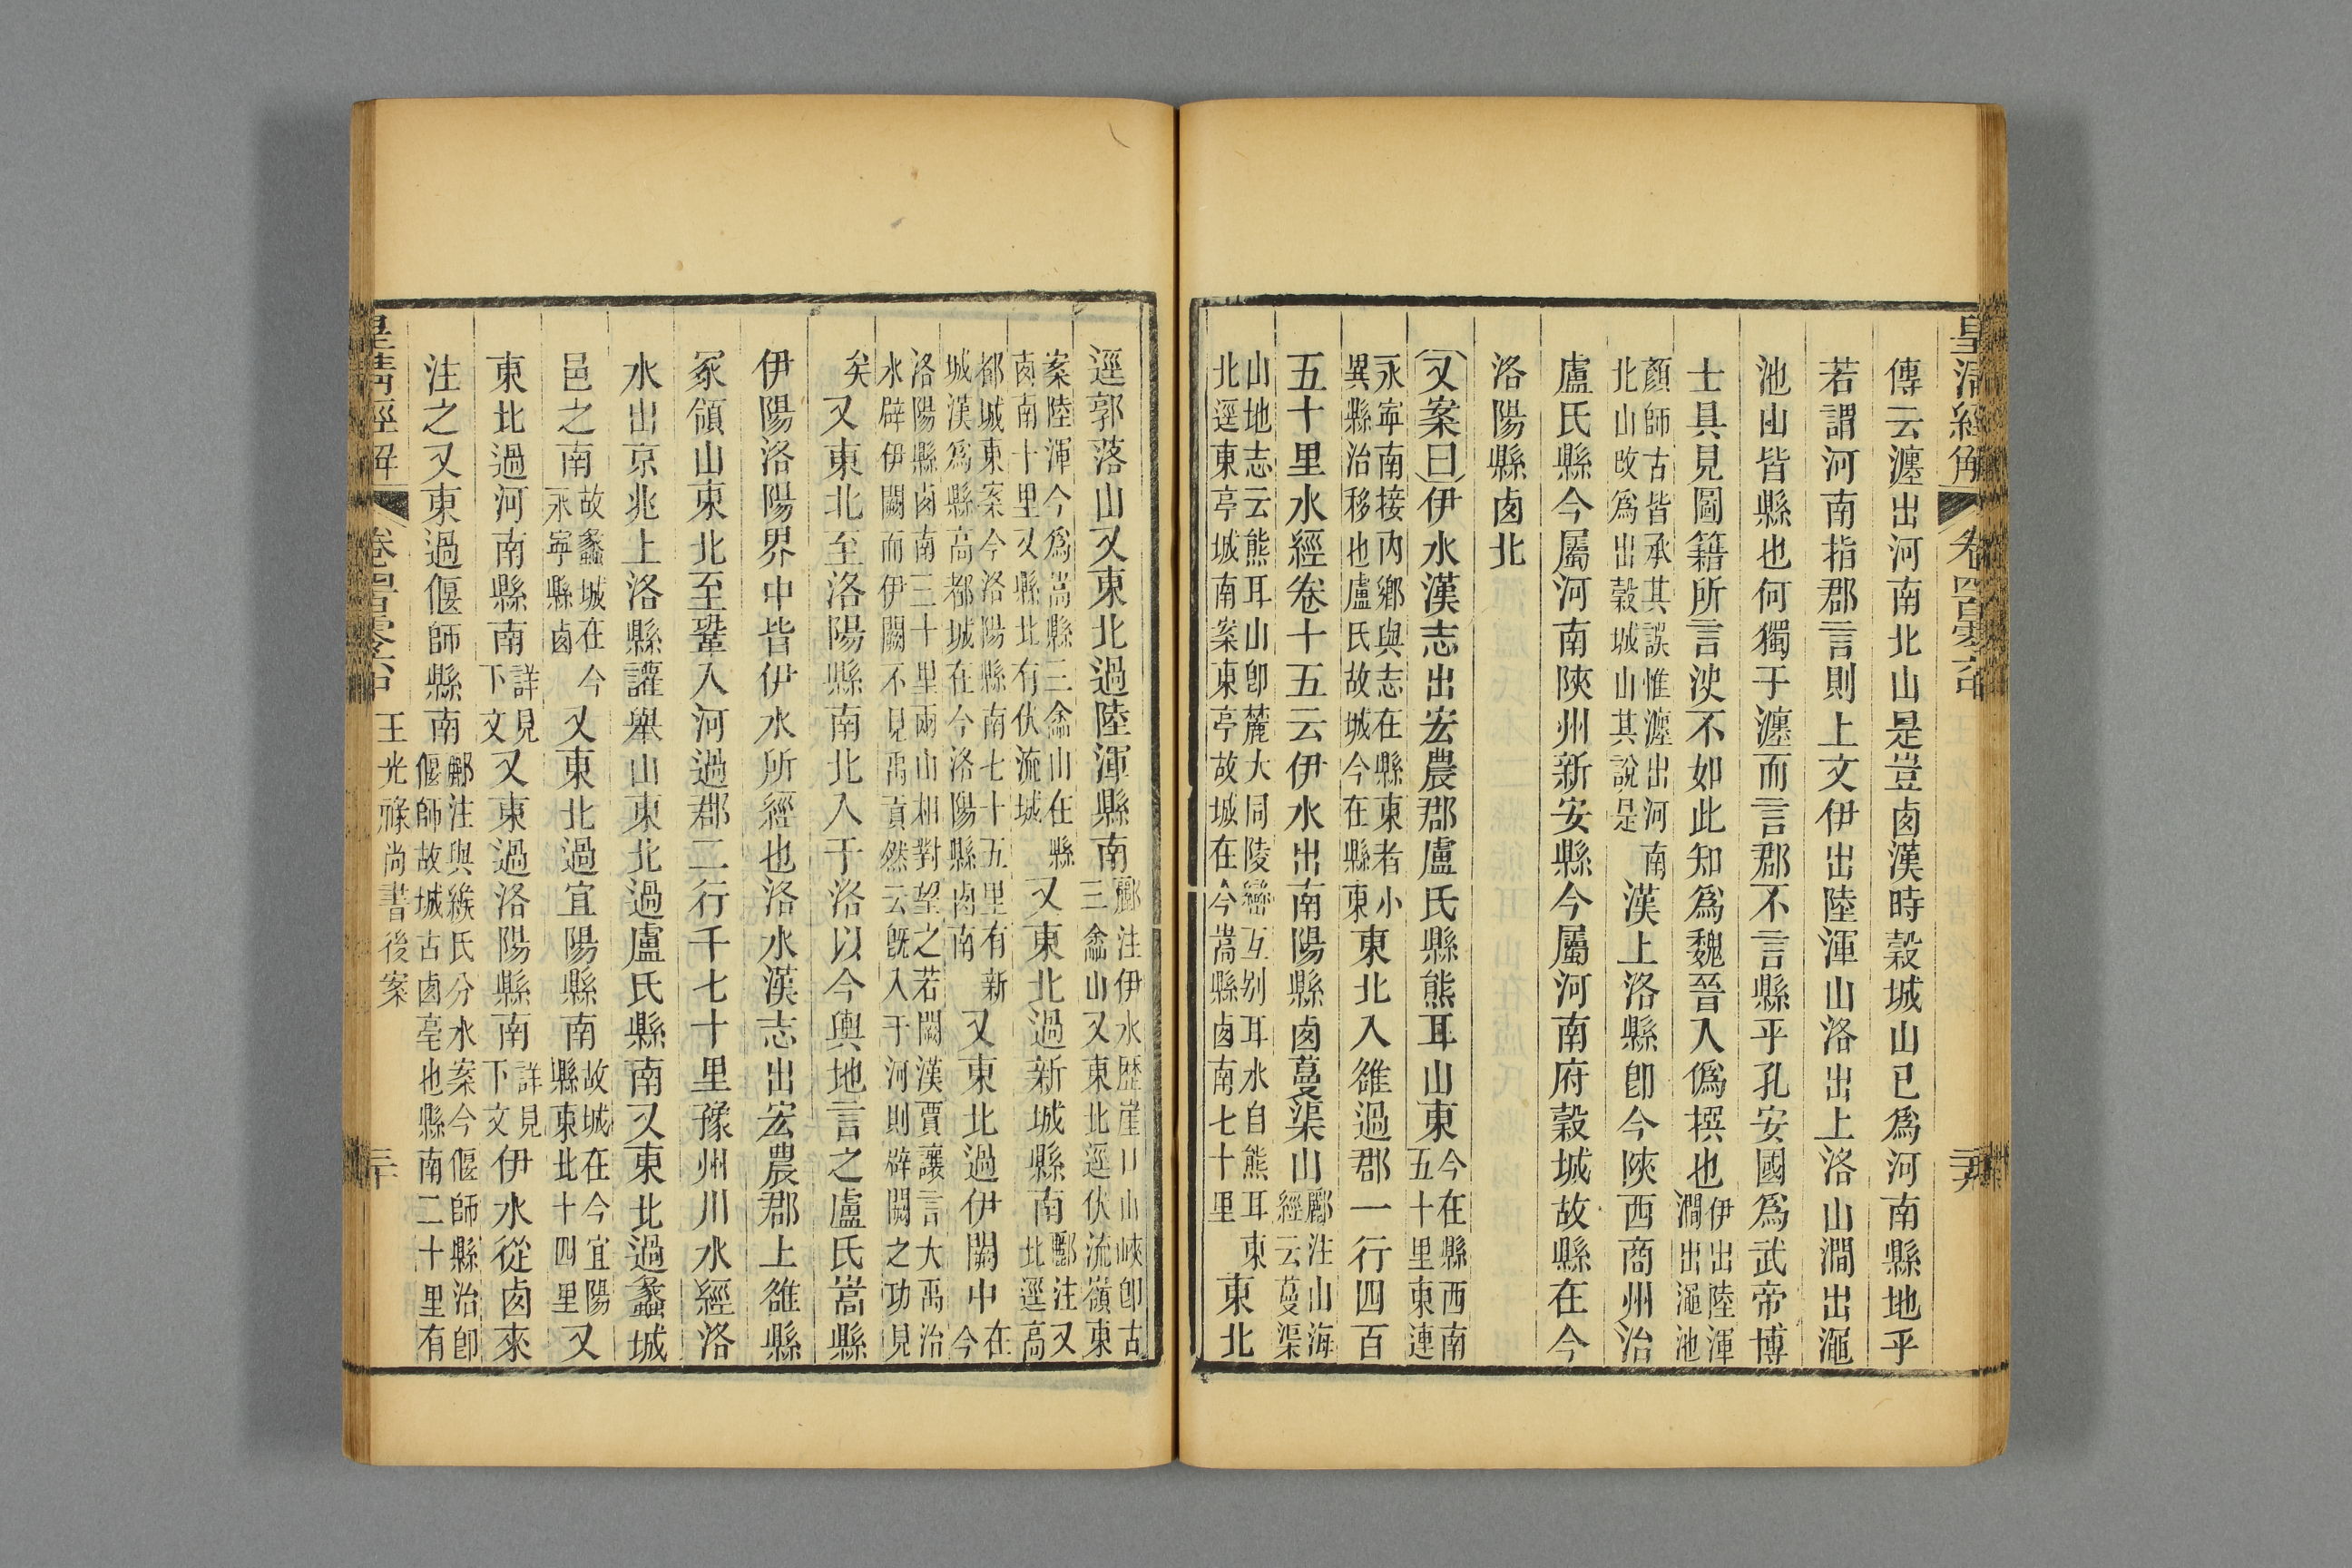 皇清經解
卷四百零六中
傳云瀍出河南北山是豈卤漢時穀城山已爲河南縣地乎
若謂河南指郡言則上文伊出陸渾山洛出上洛山澗出澠
池山皆縣也何獨于瀍而言郡不言縣乎孔安國爲武帝博
士具見圖籍所言決不如此知爲魏晉人僞撰也伊出陸渾
澗出澠池
顏師古皆承其誤惟瀍出河南
北山改爲出穀城山其說是
漢上洛縣卽今陝西商州治
盧氏縣今屬河南陝州新安縣今屬河南府穀城故縣在今
洛陽縣卤北
又案曰伊水漢志出宏農郡盧氏縣熊耳山東今在縣西南
五十里東連
永寜南接內鄉與志在縣東者小
異縣治移也盧氏故城今在縣東
東北入雒過郡一行四百
五十里水經卷十五云伊水出南陽縣卤蔓渠山酈注山海
經云蔓渠
山地志云熊耳山卽麓大同陵巒互别耳水自熊耳東
北逕東亭城南案東亭故城在今嵩縣卤南七十里
東北
逕郭落山又東北過陸渾縣南酈注伊水歷崖口山峽卽古
三鵗山又東北逕伏流嶺東
案陸渾今爲嵩縣三鵗山在縣
卤南十里又縣北有伏流城
又東北過新城縣南酈注又
北逕高
都城東案今洛陽縣南七十五里有新
城漢爲縣高都城在今洛陽縣卤南
又東北過伊闕中在
今
洛陽縣卤南三十里兩山相對望之若闕漢賈讓言大禹治
水辟伊闕而伊闕不見禹貢然云旣入于河則辟闕之功見
矣
又東北至洛陽縣南北入于洛以今輿地言之盧氏嵩縣
伊陽洛陽界中皆伊水所經也洛水漢志出宏農郡上雒縣
冢領山東北至鞏入河過郡二行千七十里豫州川水經洛
水出京兆上洛縣讙舉山東北過盧氏縣南又東北過蠡城
邑之南故蠡城在今
永寜縣卤
又東北過宜陽縣南故城在今宜陽
縣東北十四里
又
東北過河南縣南詳見
下文
又東過洛陽縣南詳見
下文
伊水從卤來
注之又東過偃師縣南酈注與緱氏分水案今偃師縣治卽
偃師故城古卤亳也縣南二十里有
皇清經解
卷四百零六中
王光祿尚書後案
三十